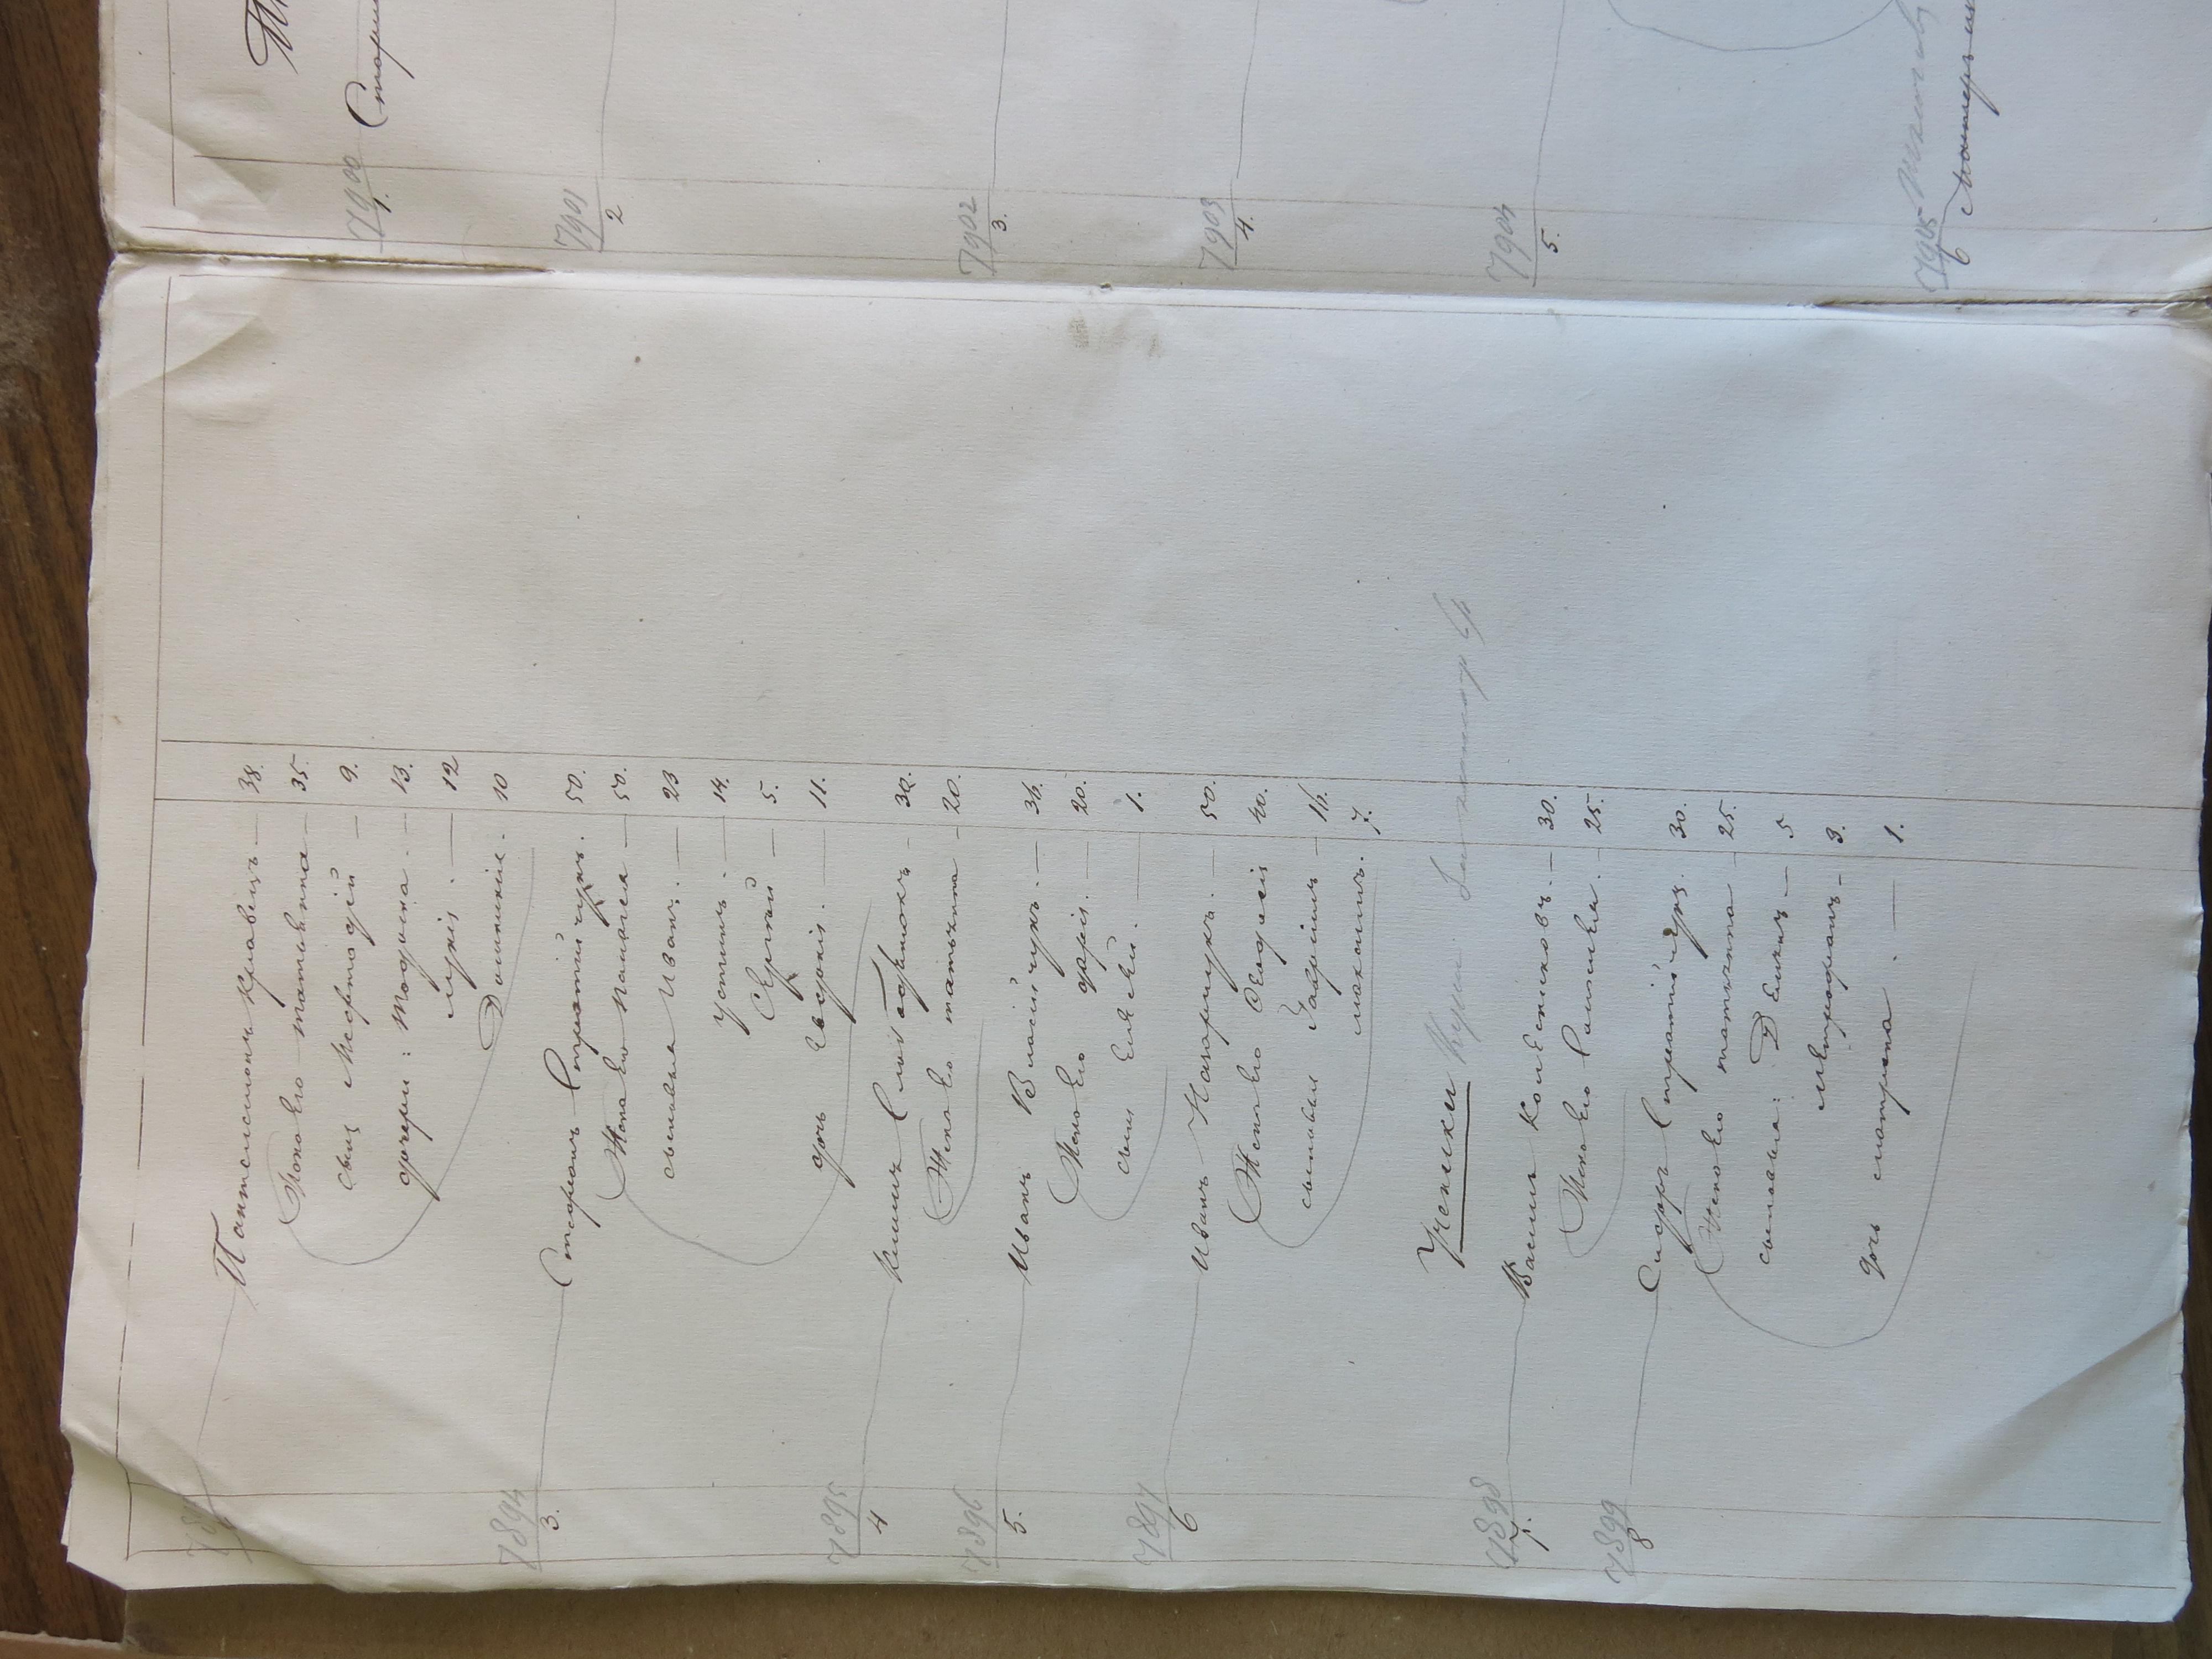 Пантелимонъ Кравецъ — 38.
Жена Его татьянна — 35.
сынъ Мефтодій — 9.
дочери: тодунка. — 13.
лукія. — 12
Домникіе. 10
7894
3. Стефанъ Стратійчукъ. 50.
Жена Его Палагея — 50.
сыновья Иванъ. — 23
Устинъ. — 14.
Сергѣй — 5.
дочь Евдокія. — 11.
7895
4 Климъ — 30.
Жена Его татьянна — 20.
7896
5. Иванъ Василчукъ. — 36.
Жена Его — 20.
сынъ Елясей. — 1.
7897
6 Иванъ Назарчукъ. — 50.
Жена Его Феодосія 40.
сыновья Гавріилъ — 16.
максимъ. 7.
Ученики
7898
7. Василь Колесниковъ. — 30.
Жена Его — 25.
7899
8 Сидоръ Стратійчукъ. 30.
Жена Его татьянна — 25.
сыновья: Демянъ — 5
митрофанъ — 3.
дочь матрона. — 1.
7900
1.
7901
2
7902
3.
7903
4.
7904
5.
7905
6